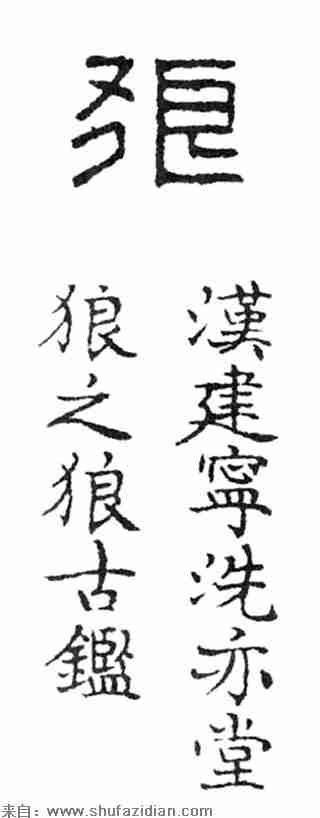 狼
漢建寧洗亦堂
狼之狼古鑑
来自：www.shufazidian.com